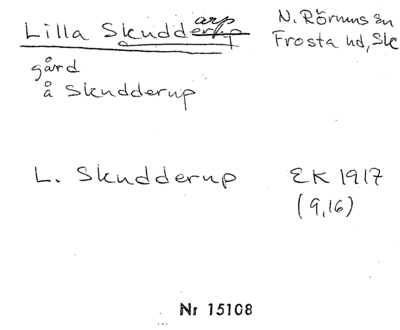 Lilla Skuddarp
N. Rörums sn
Frosta hd, Sk
gård
å Skudderup
L. Skudderup
EK 1917
(9,16)
Nr 15108